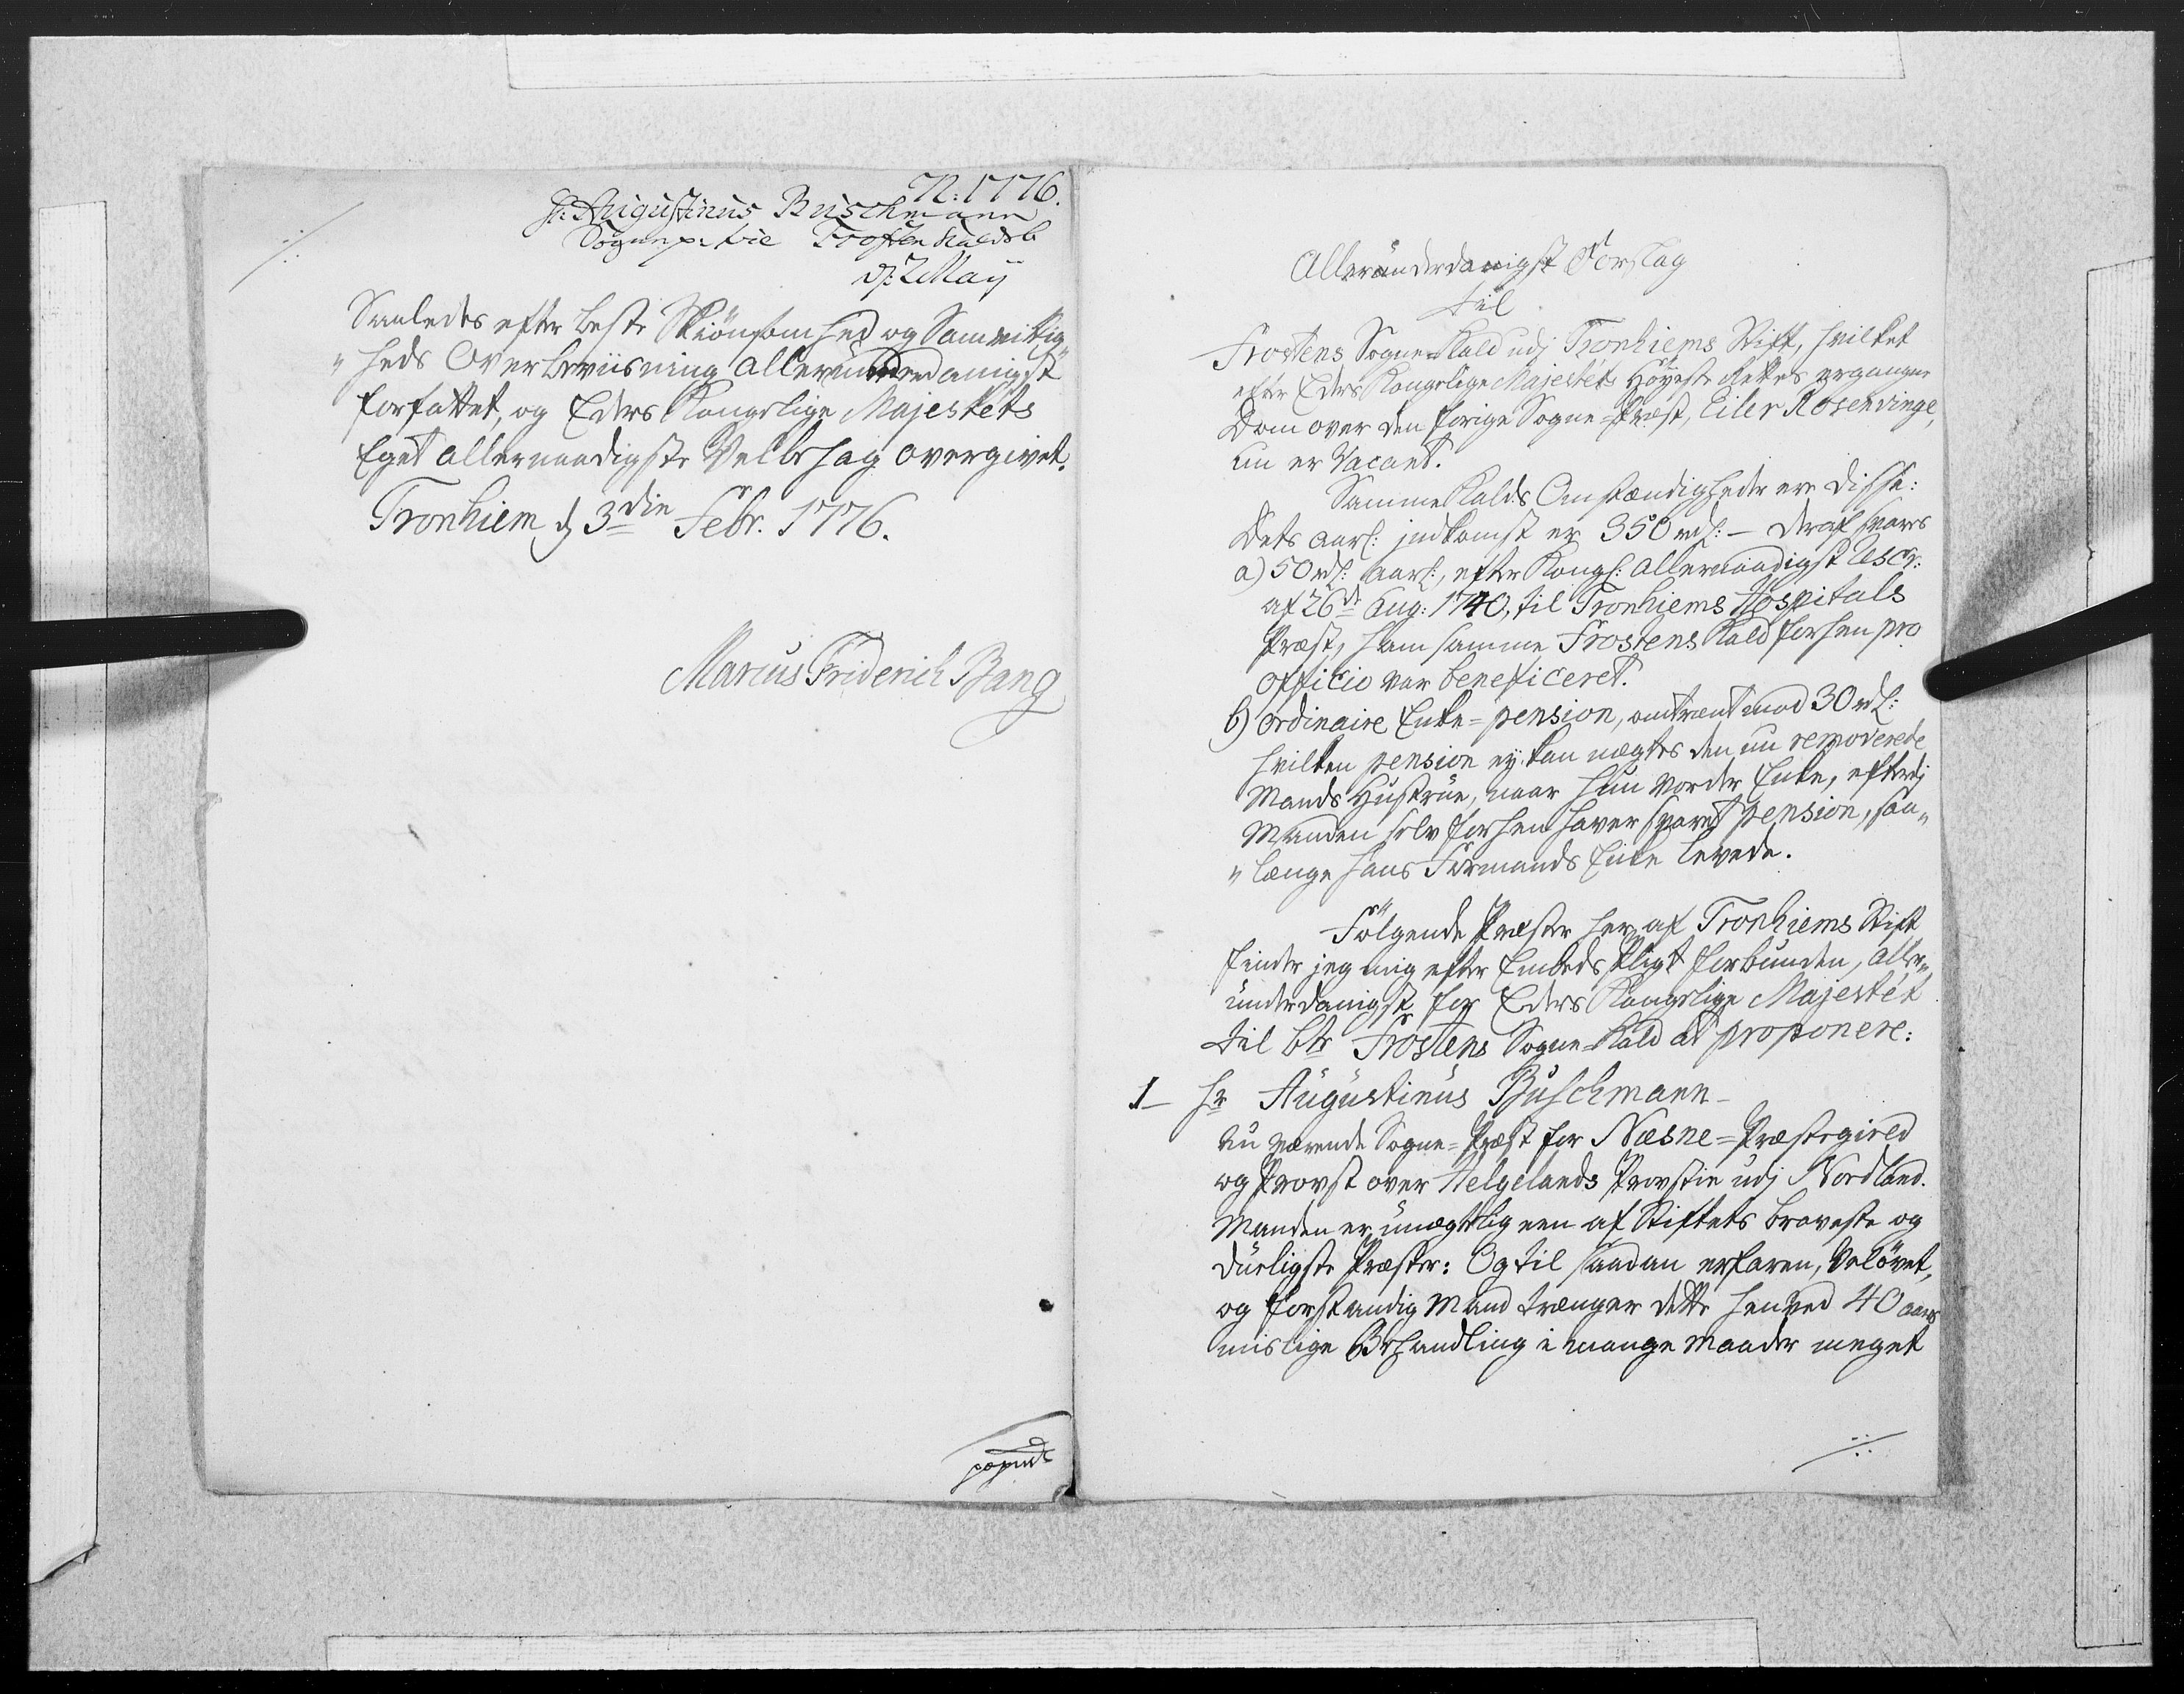 N: 1776.
Hr: Augustinus Buschmann
Sognepr. til Frosten Kald
d: 2 Maij
Saaledes efter beste Skiönsomhed og Samvittig„
„heds Overbeviisning allerunderdanigst
forfattet, og Eders Kongelige Majestets
Eget allernaadigste Velbehag overgivet.
Tronhiem d 3die Febr. 1776.
Marcus Friderich Bang
Allerunderdanigst Forslag
til
Frostens Sogne-Kald udj Tronhiems Stift, hvilket
efter Eders Kongelige Majestets Höyeste Rettes ergangne
Dom over den forige Sogne-Præst, Eiler Rosenvinge,
nu er Vacant.
Samme Kalds Omstændigheder ere disse:
Dets aarl: indkomst er 350 rdl: - deraf svares
a) 50 rdl: aarl:, efter Kongl: allernaadigst Rescr:
af 26de Aug: 1740, til Tronhiems Hospitals
Præst, som samme Frostens Kald forhen pro
officio var beneficeret.
b) ordinaire Enke-pension, omtrent mod 30 rdl:
hvilken pension ey kan nægtes den nu removerede
Mands Hustrue, naar hun vorder Enke, efterdj
Manden selv forhen haver svaret pension, saa„
„længe hans Formands Enke levede.
Fölgende Præster her af Tronhiems Stift
finder jeg mig efter Embeds Pligt forbunden, aller„
underdanigst for Eders Kongelige Majestet
til bte Frostens Sogne-Kald at proponere:
1 - Hr Augustinus Buschmann -
Nu værende Sogne-Præst for Næsne-Præstegield
og Provst over Helgelands Provstie udj Nordland.
Manden er unægtelig een af Stiftets braveste og
dueligste Præster: Og til saadan erfaren, Velövet,
og forstandig Mand trænger dette henved 40 aars
mislige Behandling i mange Maader meget